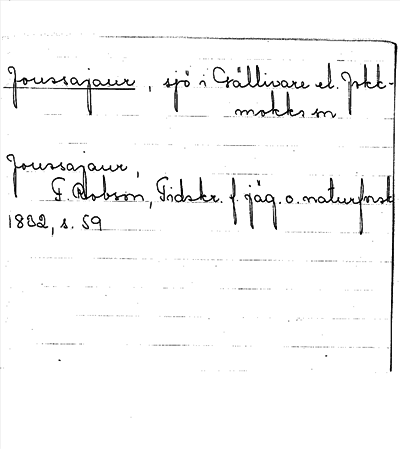 Joussajaur, sjö i Gällivare el. Jokk-
mokks sn
Joussajaur,
F. Robson, Tidskr. f. jäg. o. naturforsk
1832, s. 59